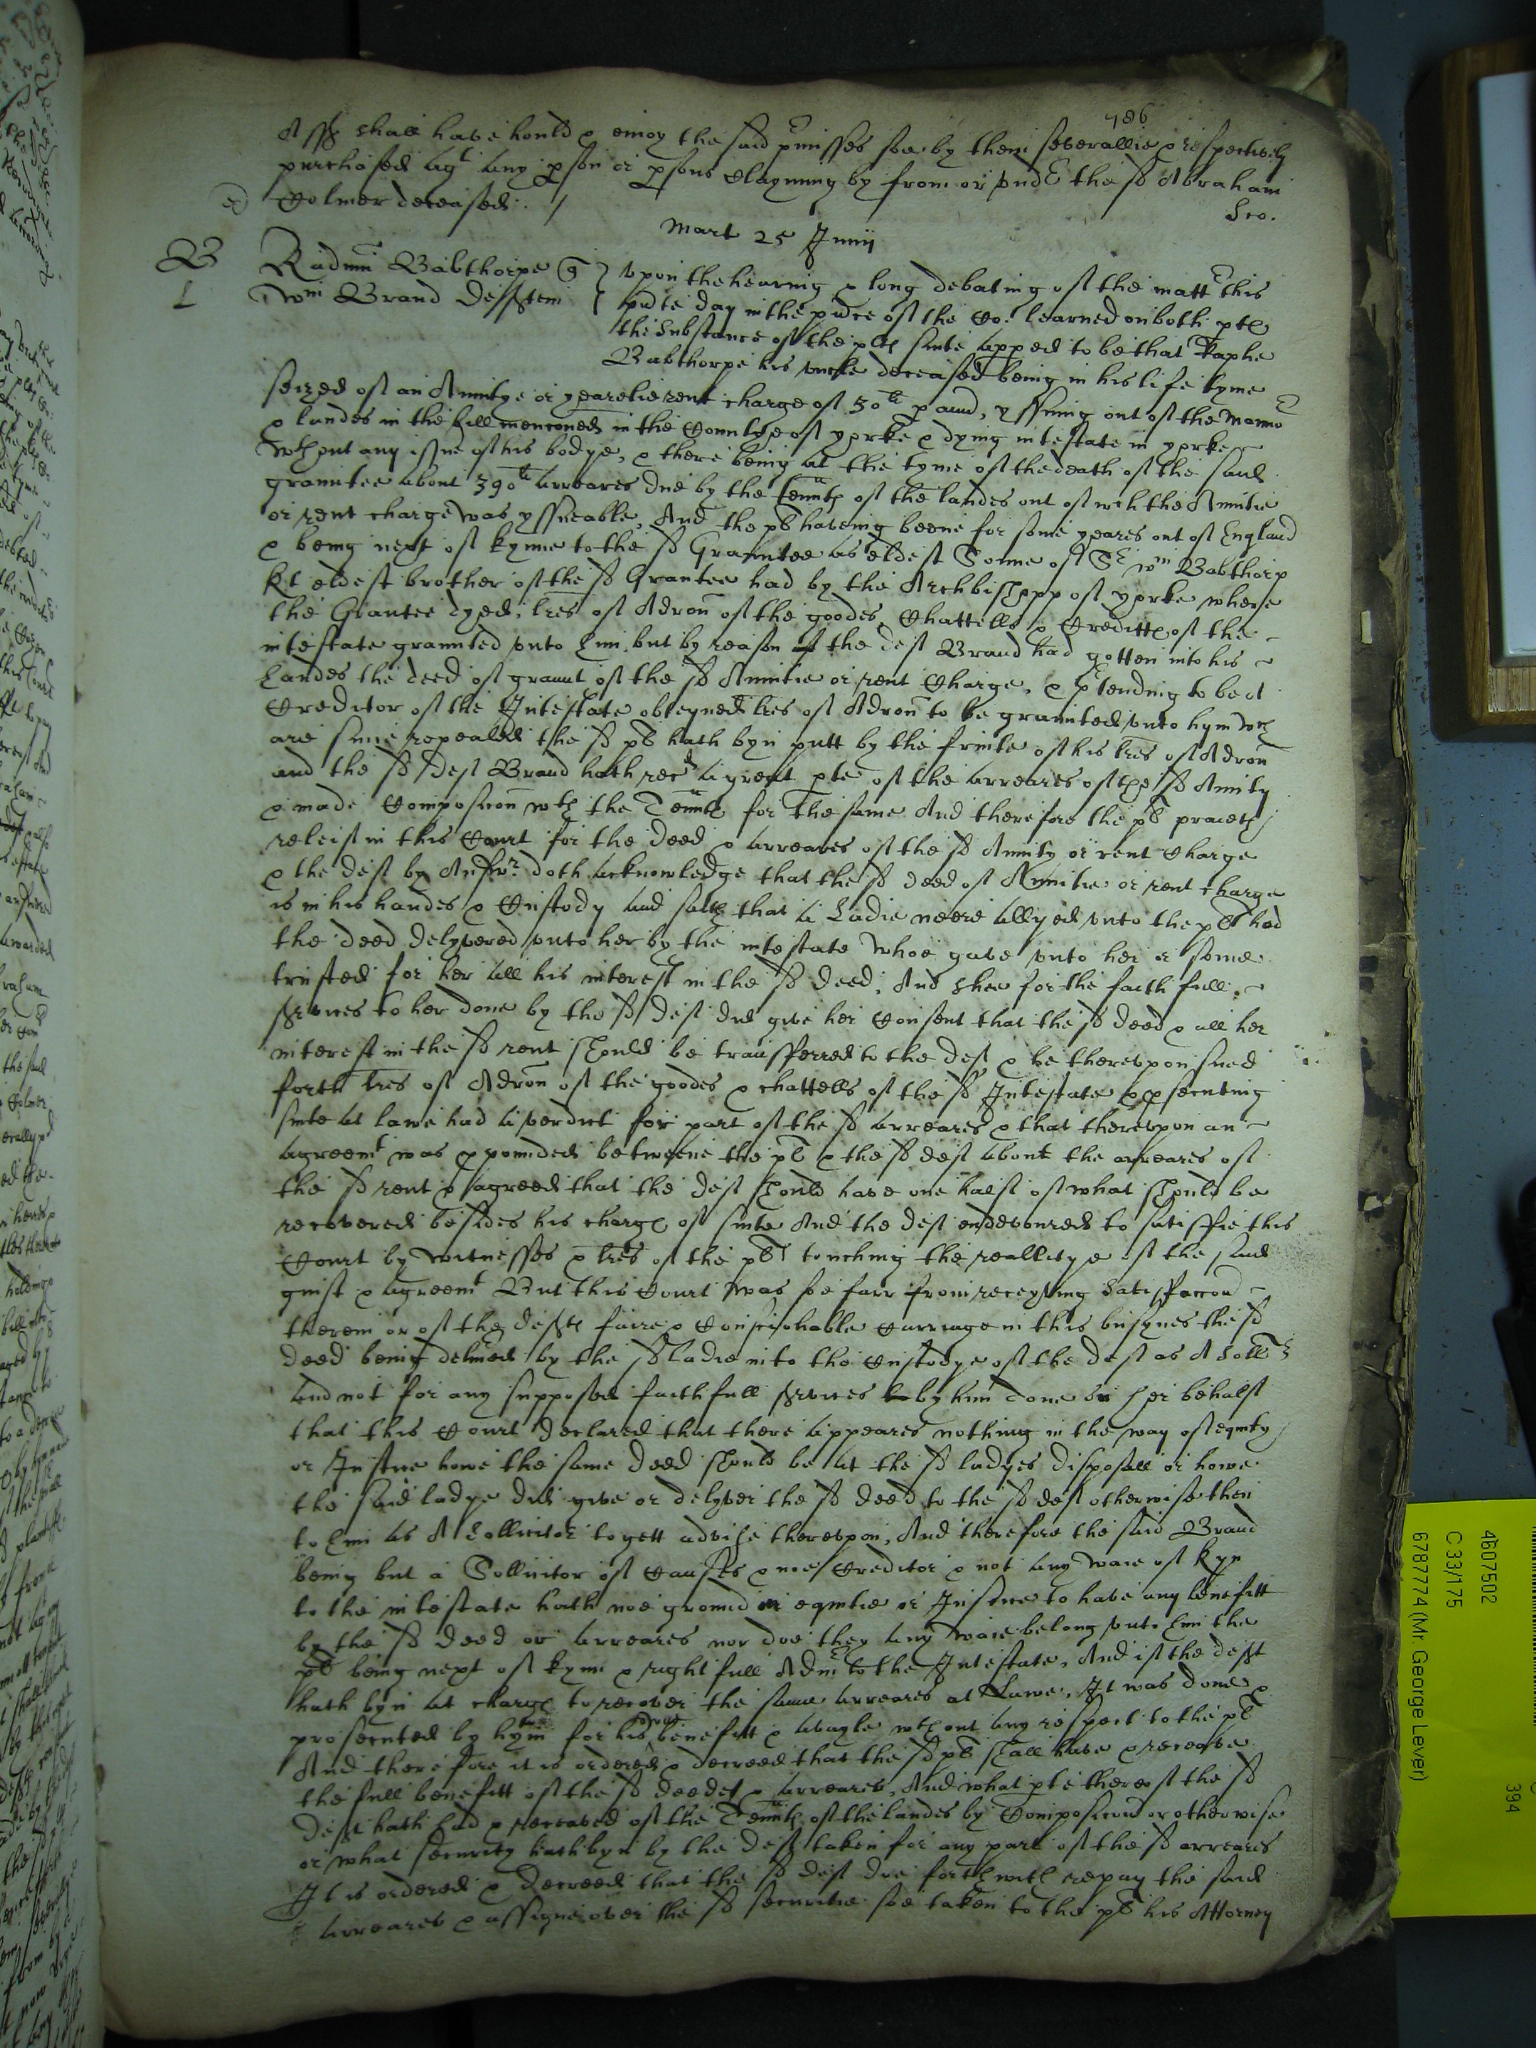 786
Asss shall have hould & enioy the said pmisses soe by them severallie & respectively
purchased agt any pson or psons clayming by from or vnder the sd Abraham
Colmer deceased. /
Sco.
Mart 25 Junij
B
L
Radmu Babthorpe q
Wm Brand Defftem
vpon the hearing & long debating of the matt this
pnte day in the pnce of the Co: learned on both ptes
the substance of the pltes suite apped to be that Raphe
Babthorpe his vncle deceased being in his life tyme
seized of an Annitye or yearelie rent charge of 50li p ann, yssuing out of the Manno
& landes in the bill mencioned in the Countye of yorke & dying intestate in yorke
wthout any issue of his bodye, & there being at the tyme of the death of the said
grauntee about 390li arreares due by the tennts of the landes out of wch the Annitie
or rent charge was yssueable, And the plt haveing beene for some yeares out of England
& being next of kynne to the sd Grauntee as eldest Sonne of Sr Wm Babthorp
Kt eldest brother of the sd Grantee had by the Archbishopp of yorke where
the Grantee dyed, lres of Adcon of the goodes, Chattells & Creditts of the
intestate graunted vnto him, but by reason of the deft Brand had gotten into his
handes the deed of graunt of the sd Annitie or rent Charge, & ptending to be a
Creditor of the Intestate obteyned lres of Adcon to be graunted vnto hym wch
are since repealed the sd plt hath byn putt by the fruite of his lres of Adcon
and the sd deft Brand hath recd a great pte of the arreares of the sd Annity
& made Composicon wth the Tennts for the same And therefore the plt prayeth
releif in this Court for the deed & arreares of the sd Annity or rent Charge
& the deft by Answr doth acknowledge that the sd deed of Annitie or rent charge
is in his handes & Custody and saith that a Ladie neere allyed vnto the plt had
the deed delyvered vnto her by the intestate whoe gave vnto her or some
trusted for her all his interest in the sd deed, And shee for the faithfull
services to her done by the sd deft did give her Consent that the sd deed & all her
interest in the sd rent should be transferred to the deft & he therevpon sued
forth lres of Adcon of the goodes & chattells of the sd Intestate & psecuting
suite at lawe had a verdict for part of the sd arreares & that therevpon an
agreemt was ppounded betweene the plt & the sd deft about the arreares of
the sd rent & agreed that the deft should have one halfe of what should be
recovered besides his charge of suite And the deft endevoured to satisfie this
Court by witnesses & lres of the plt touching the reallitye of the said
guift & agreemt But this Court was soe farr from receyving satisfaccon
therein or of the defts faire & Conscionable Carriage in this busynes the sd
deed being delivered by the sd Ladie into the Custodye of the deft as A Sollr
and not for any supposed faithfull services by him done on her behalf
that this Court declared that there appeares nothing in the way of equity
or Justice howe the same deed should be at the sd ladyes disposall or howe
the said ladye did give or delyver the sd deed to the sd deft otherwise then
to him as A Sollicitor to gett advise therevpon, And therefore the said Brand
being but a Sollicitor of Causes & noe Creditor & not any waie of kyn
to the intestate hath noe ground in equitie or Justice to have any benefitt
by the sd deed or arreares nor doe they any waie belong vnto him the
plt being next of kynn & rightfull Admr to the Intestate, And if the deft
hath byn at charge to recover the same arreares at Lawe, It was done &
prosecuted by hym for his owne benefitt & availe wthout any respect to the plt
And therefore it is ordered & decreed that the sd plt shall have & receave
the full benefitt of the sd deedes & arreares, And what pte thereof the sd
Deft hath had & receaved of the Tennts of the landes by Composicon or otherwise
or what security hath byn by the deft taken for any part of the sd arreares
It is ordered & Decreed that the sd deft doe forthwith repay the said
arreares & assigne over the sd securitie soe taken to the plt his Attorney
4607502
C 33/175
6787774 (Mr. George Lever)
394